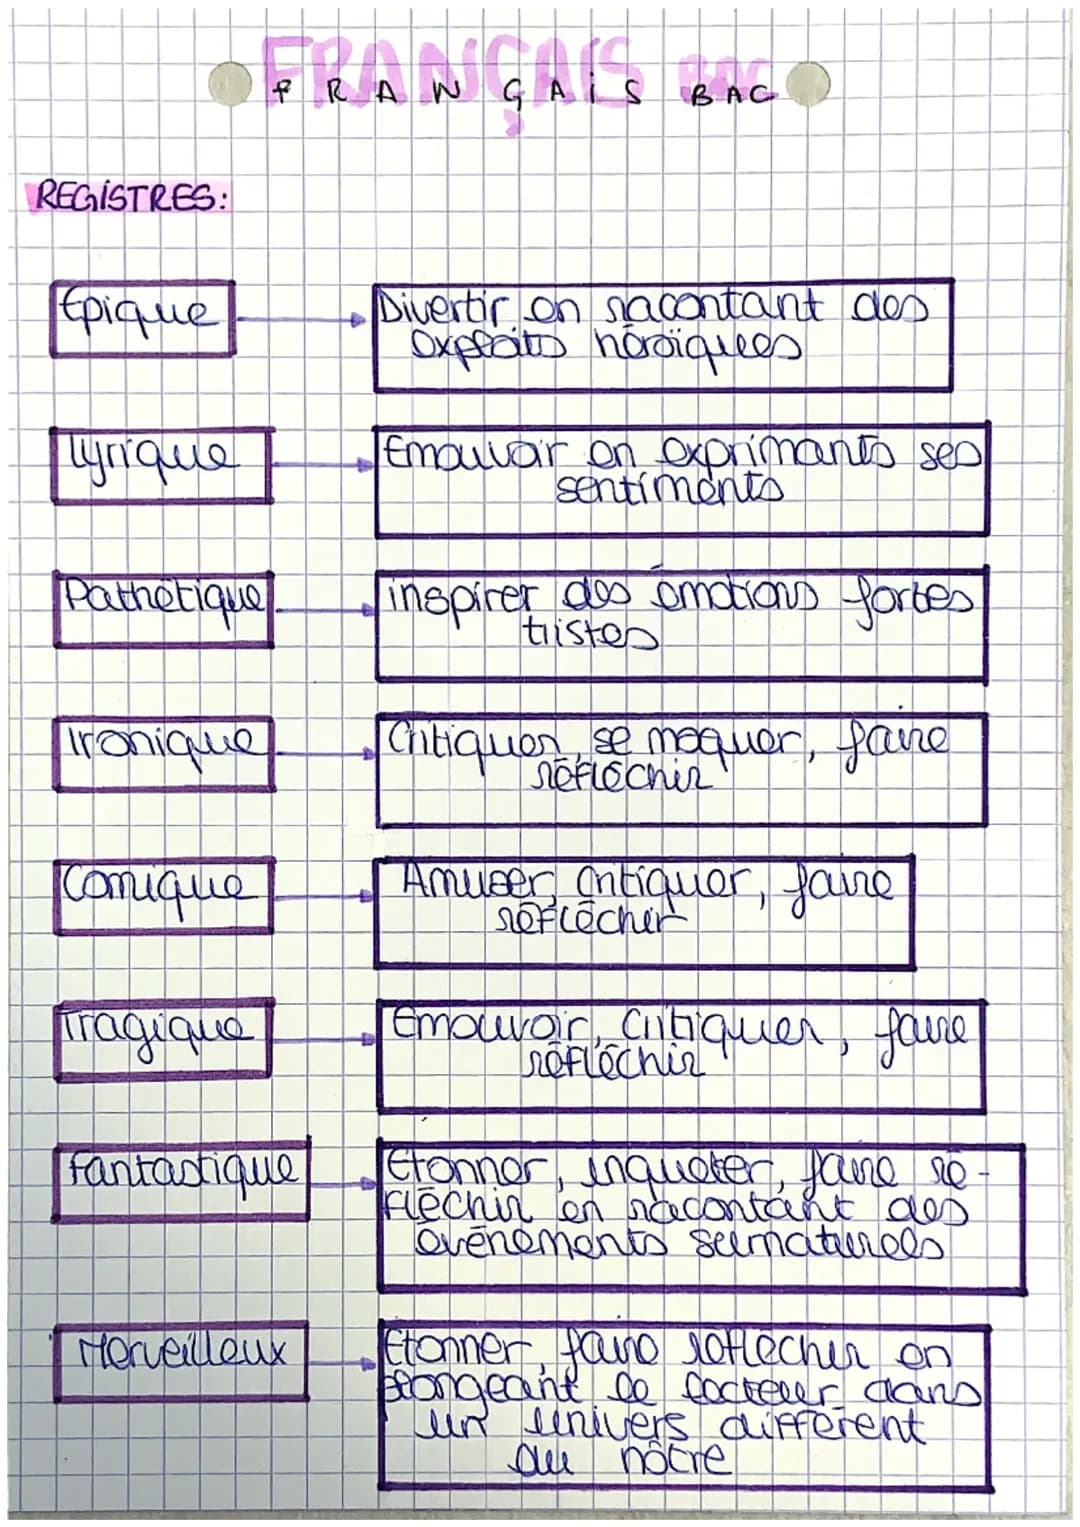 FRANÇAIS BAC
FRANÇAIS BAC
REGISTRES:
Epique
Divertir en racontant des
exploits héroïques
Lyrique
Emouvoir en exprimants ses
sentiments
Pathétique
inspirer des émotions fortes
tristes
Ironique
Critiquer, se moquer, faire
réfléchir
Comique
Amuser, critiquer, faire
réflechir
Tragique
Emouvoir, critiquer, faire
réfléchir
Fantastique
Etonner, inquieter, faire ré-
fléchir en racontant des
evénements surnaturels
Merveilleux
Etonner, faire réflechir en
plongeant le lecteur dans
un univers différent
du nôtre